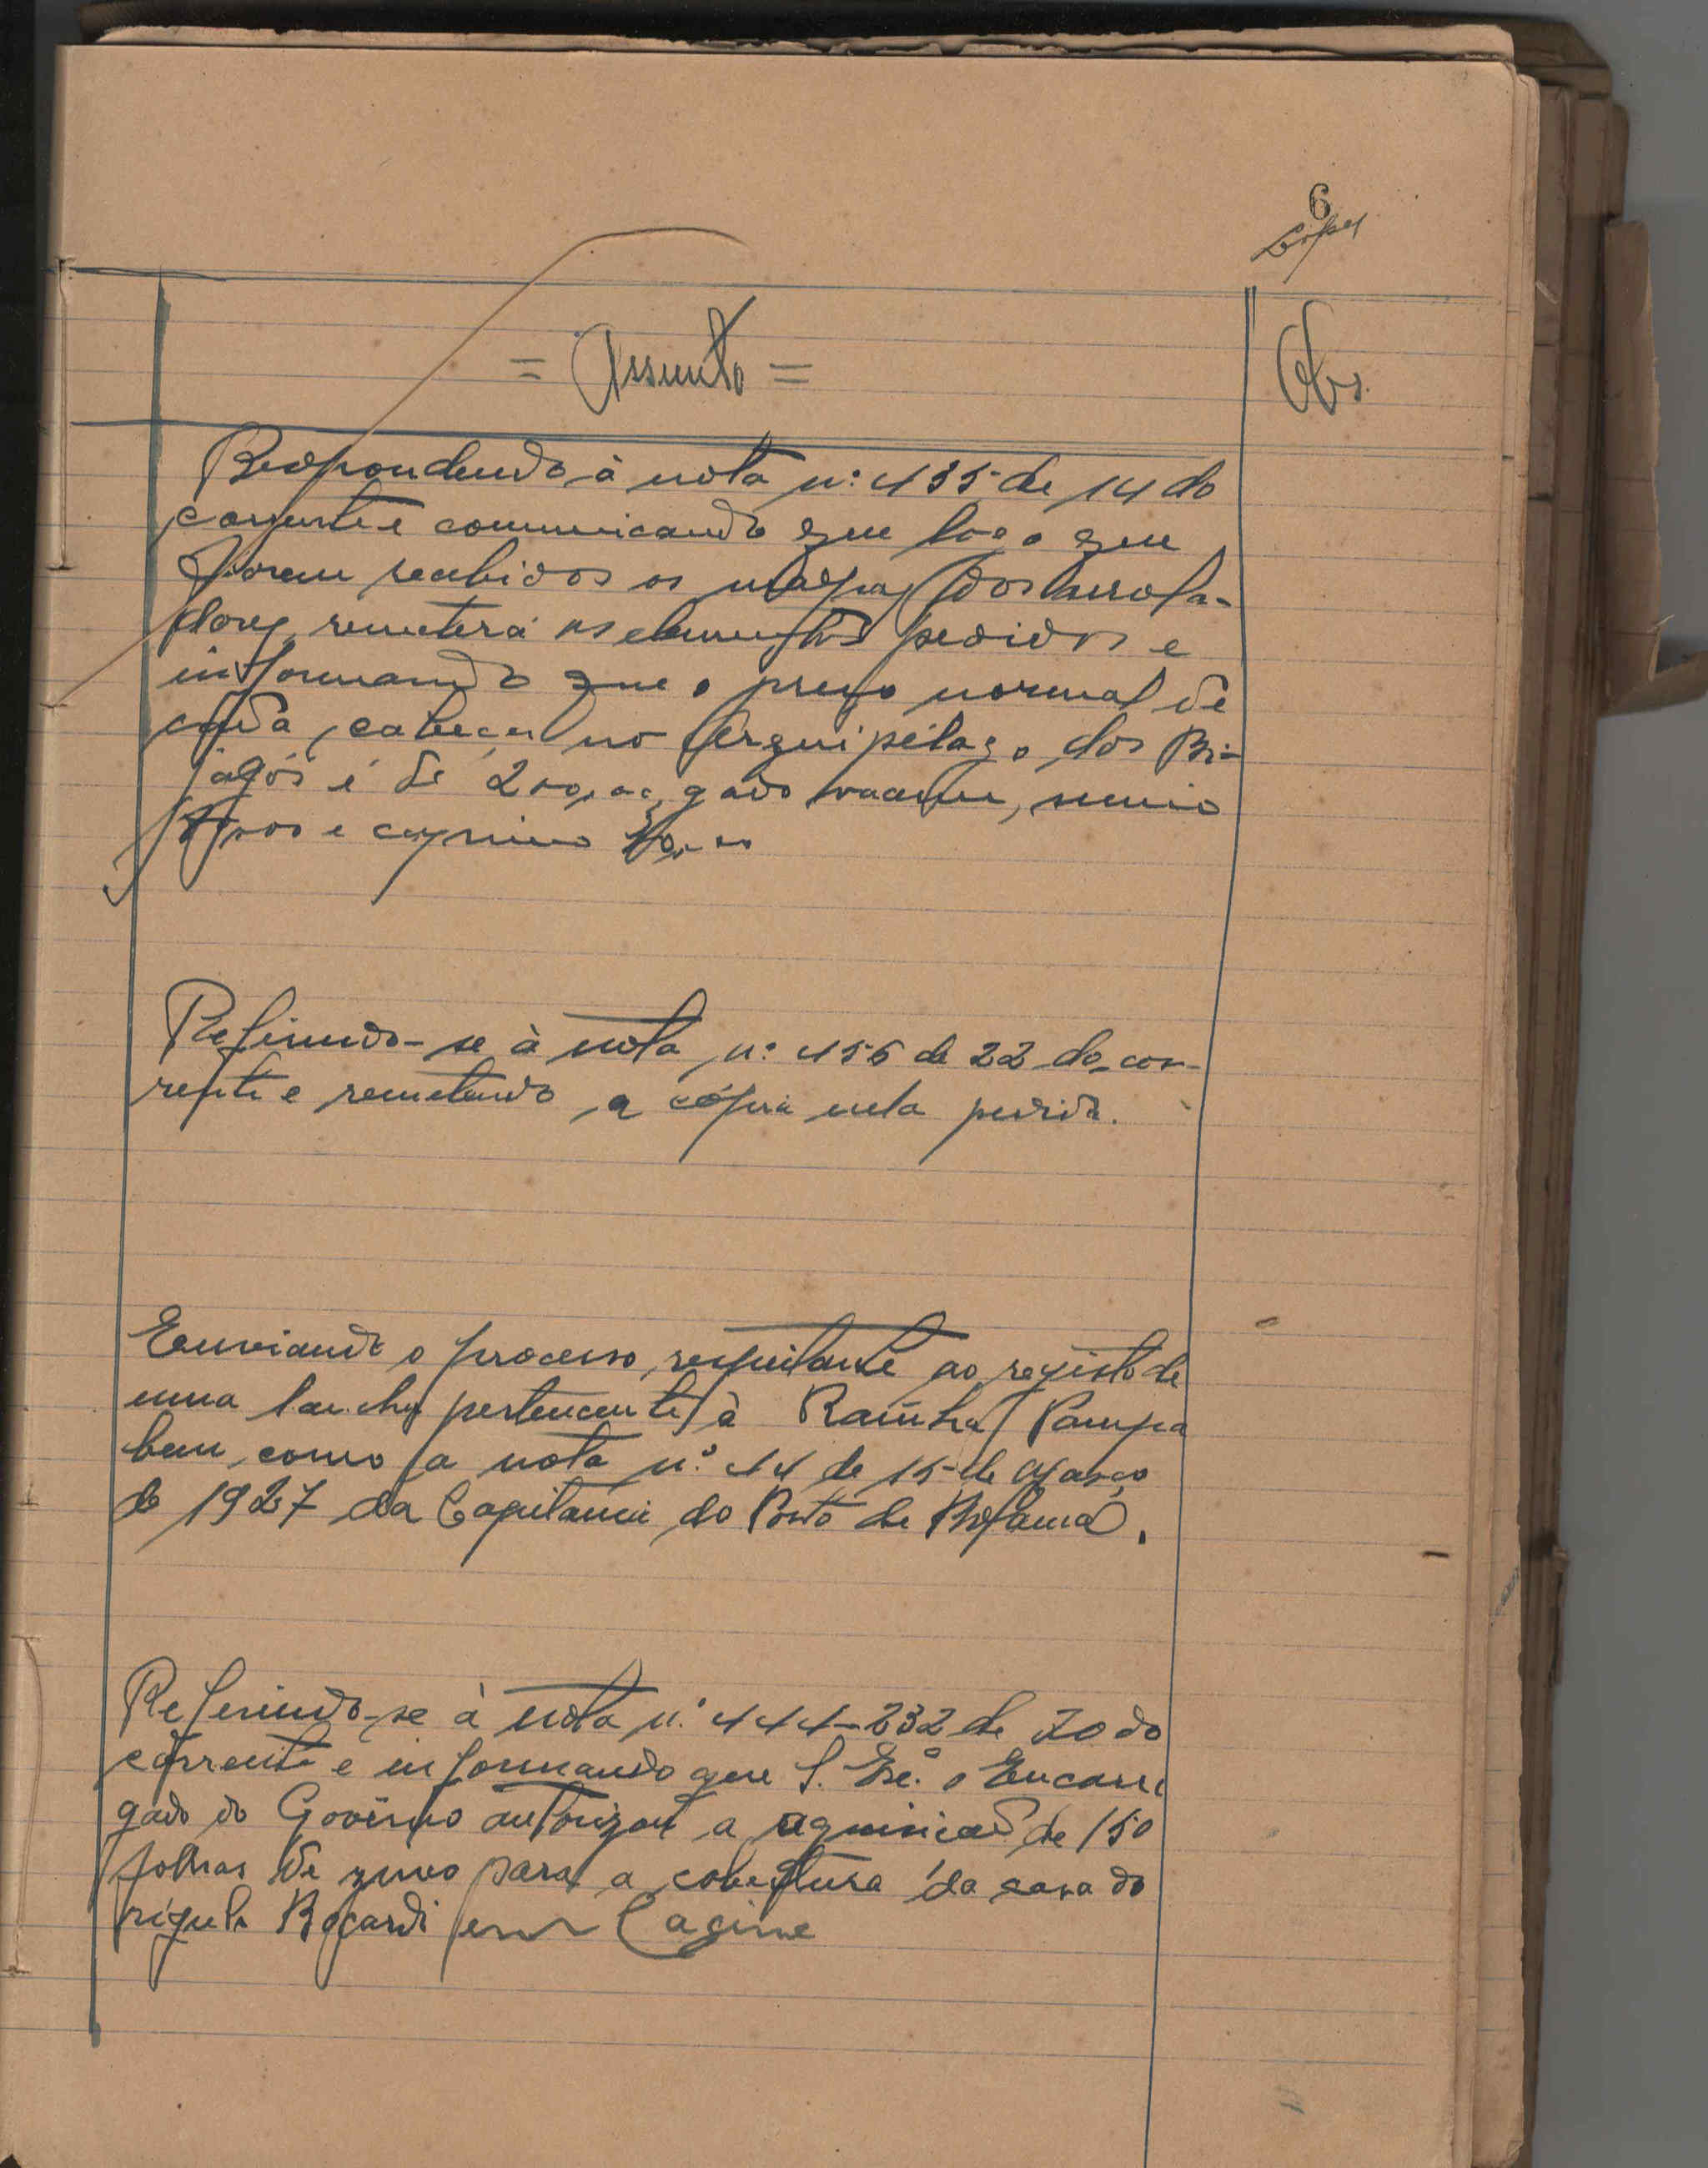 6
Lopes
= Assunto =
Obs.
Respondendo à nota n.º 435 de 14 do
corrente e communicando que logo que
forem recebidos os mapas dos arrola-
dores, remeterá os elementos pedidos e
informando que o preço normal de
cada cabeça no Arquipélago dos Bi-
jagós é de 200,00, gado vacum, suino
e caprino
Referindo-se à nota n.º 456 de 22 do cor-
rente e remetendo a cópia nela pedida.
Enviando o processo respeitante ao registo de
uma lancha pertencente à Rainha Pampa
bem como a nota n.º 44 de 15 de Março
de 1927 da Capitania do Porto de Bolama.
Referindo-se à nota n.º 444-232 de 20 do
corrente e informando que S. Exª. o Encarre
gado do Govêrno autorizou a aquisicao de 150
folhas de zinco para a cobertura da casa do
régulo em Cacine